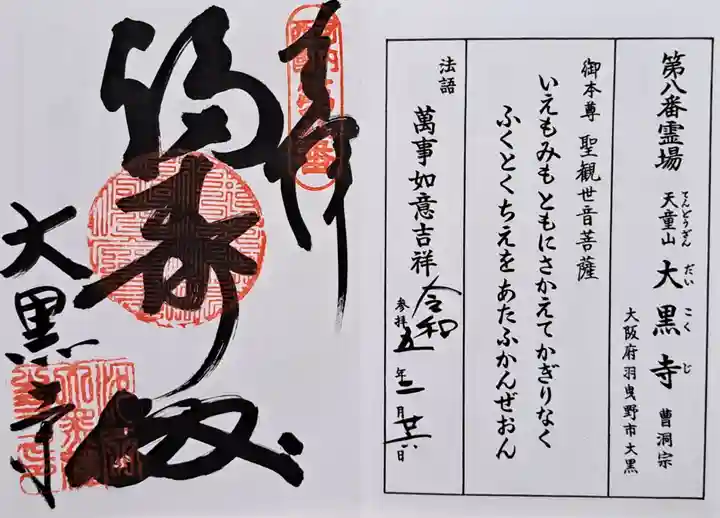 第八番霊場 天童山 大黒寺 曹洞宗
てんどうざん だいこくじ
大阪府羽曳野市大黒
御本尊 聖観世音菩薩
いえもみも ともにさかえて かぎりなく
ふくとくちえを あたふかんぜおん
法語 萬事如意吉祥
参拝 令和五年二月廿六日
奉拝
福寿殿
大黒寺